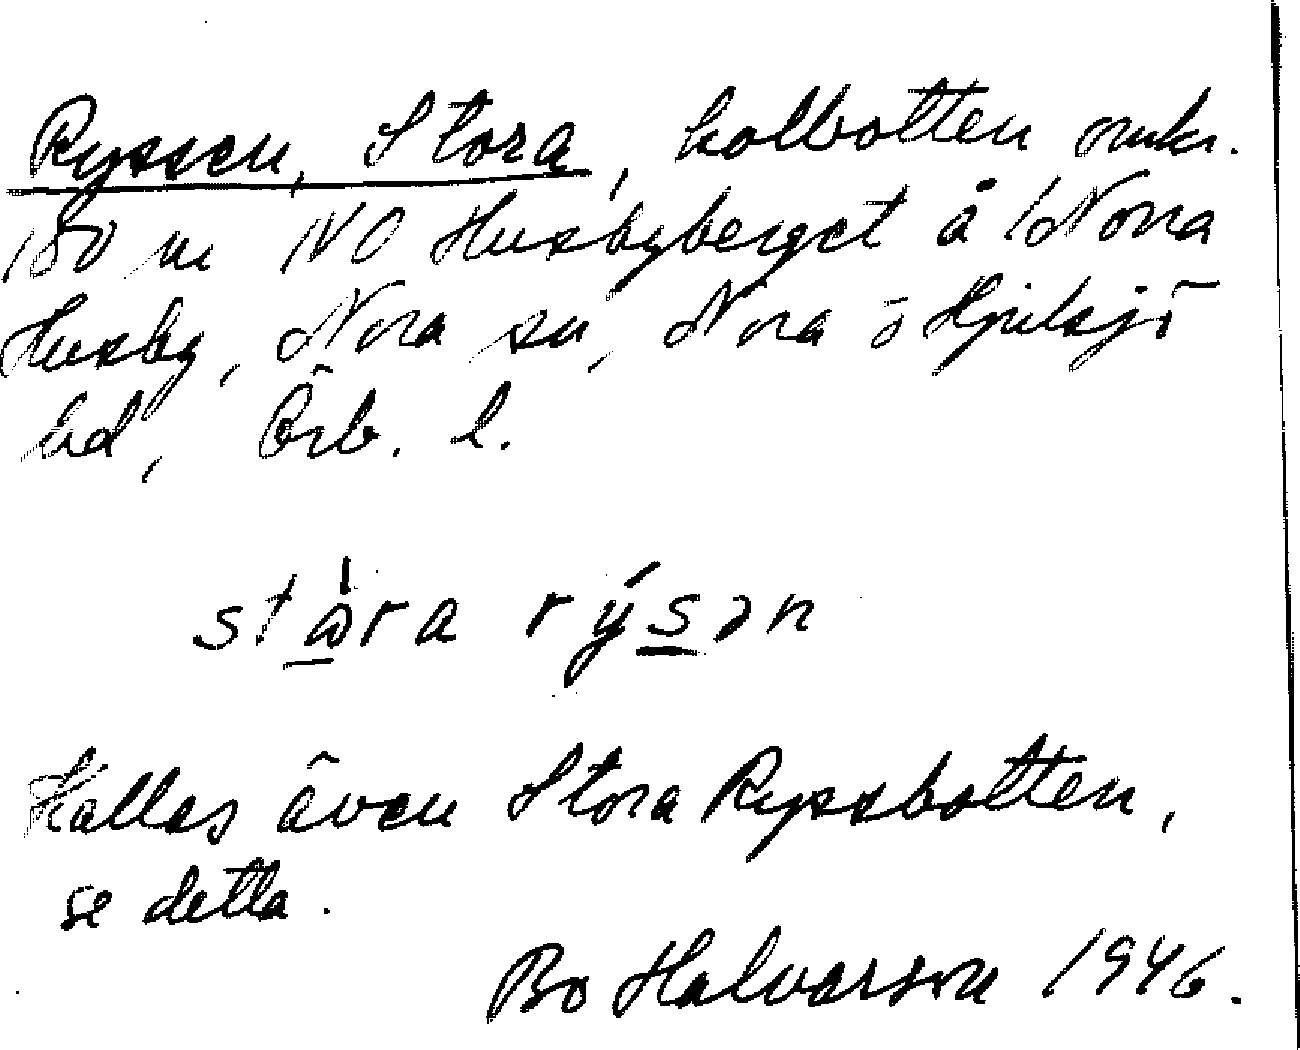 Ryssen, Stora, kolbotten omkr.
180 m NO Husbyberget å Norra
Husby, Nora sn, Nora o Hjulsjö
bd, Örb. l.
stɷ̀ra rýsən
Kallas även Stora Ryssbotten,
se detta.
Bo Halvarson 1946.